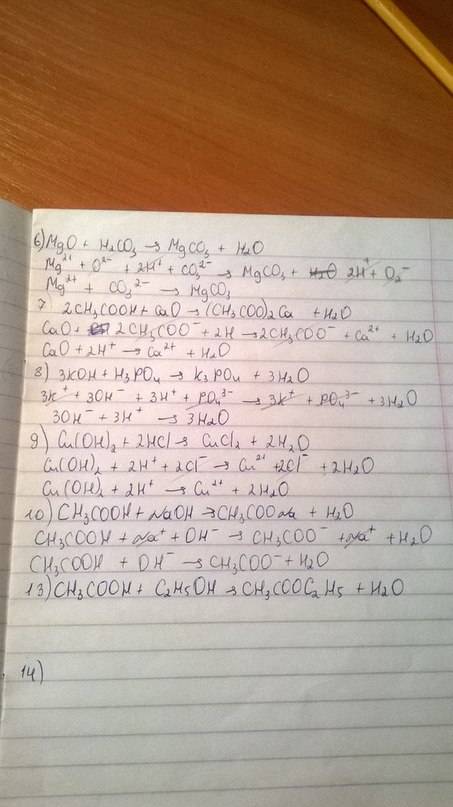 6) MgO + H₂CO₃ → MgCO₃ + H₂O
Mg²⁺ + O²⁻ + 2H⁺ + CO₃²⁻ → MgCO₃ + 2H⁺ + O₂⁻
Mg²⁺ + CO₃²⁻ → MgCO₃
7) 2CH₃COOH + CaO → (CH₃COO)₂Ca + H₂O
CaO + 2CH₃COO⁻ + 2H → 2CH₃COO⁻ + Ca²⁺ + H₂O
CaO + 2H⁺ → Ca²⁺ + H₂O
8) 3KOH + H₃PO₄ → K₃PO₄ + 3H₂O
3K⁺ + 3OH⁻ + 3H⁺ + PO₄³⁻ → 3K⁺ + PO₄³⁻ + 3H₂O
3OH⁻ + 3H⁺ → 3H₂O
9) Cu(OH)₂ + 2HCl → CuCl₂ + 2H₂O
Cu(OH)₂ + 2H⁺ + 2Cl⁻ → Cu²⁺ + 2Cl⁻ + 2H₂O
Cu(OH)₂ + 2H⁺ → Cu²⁺ + 2H₂O
10) CH₃COOH + NaOH → CH₃COONa + H₂O
CH₃COOH + Na⁺ + OH⁻ → CH₃COO⁻ + Na⁺ + H₂O
CH₃COOH + OH⁻ → CH₃COO⁻ + H₂O
13) CH₃COOH + C₂H₅OH → CH₃COOC₂H₅ + H₂O
14)